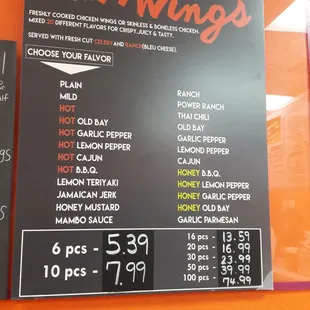 Wings
FRESHLY COOKED CHICKEN WINGS OR SKINLESS & BONELESS CHICKEN.
MIXED 20 DIFFERENT FLAVORS FOR CRISPY, JUICY & TASTY.
SERVED WITH FRESH CUT CELERY AND RANCH(BLEU CHEESE).
CHOOSE YOUR FALVOR
PLAIN
MILD
HOT
HOT OLD BAY
HOT GARLIC PEPPER
HOT LEMON PEPPER
HOT CAJUN
HOT B.B.Q.
LEMON TERIYAKI
JAMAICAN JERK
HONEY MUSTARD
MAMBO SAUCE
RANCH
POWER RANCH
THAI CHILI
OLD BAY
GARLIC PEPPER
LEMOND PEPPER
CAJUN
HONEY B.B.Q.
HONEY LEMON PEPPER
HONEY GARLIC PEPPER
HONEY OLD BAY
GARLIC PARMESAN
6 pcs - 5.39
10 pcs - 7.99
16 pcs - 13.59
20 pcs - 16.99
30 pcs - 23.99
50 pcs - 39.99
100 pcs - 74.99